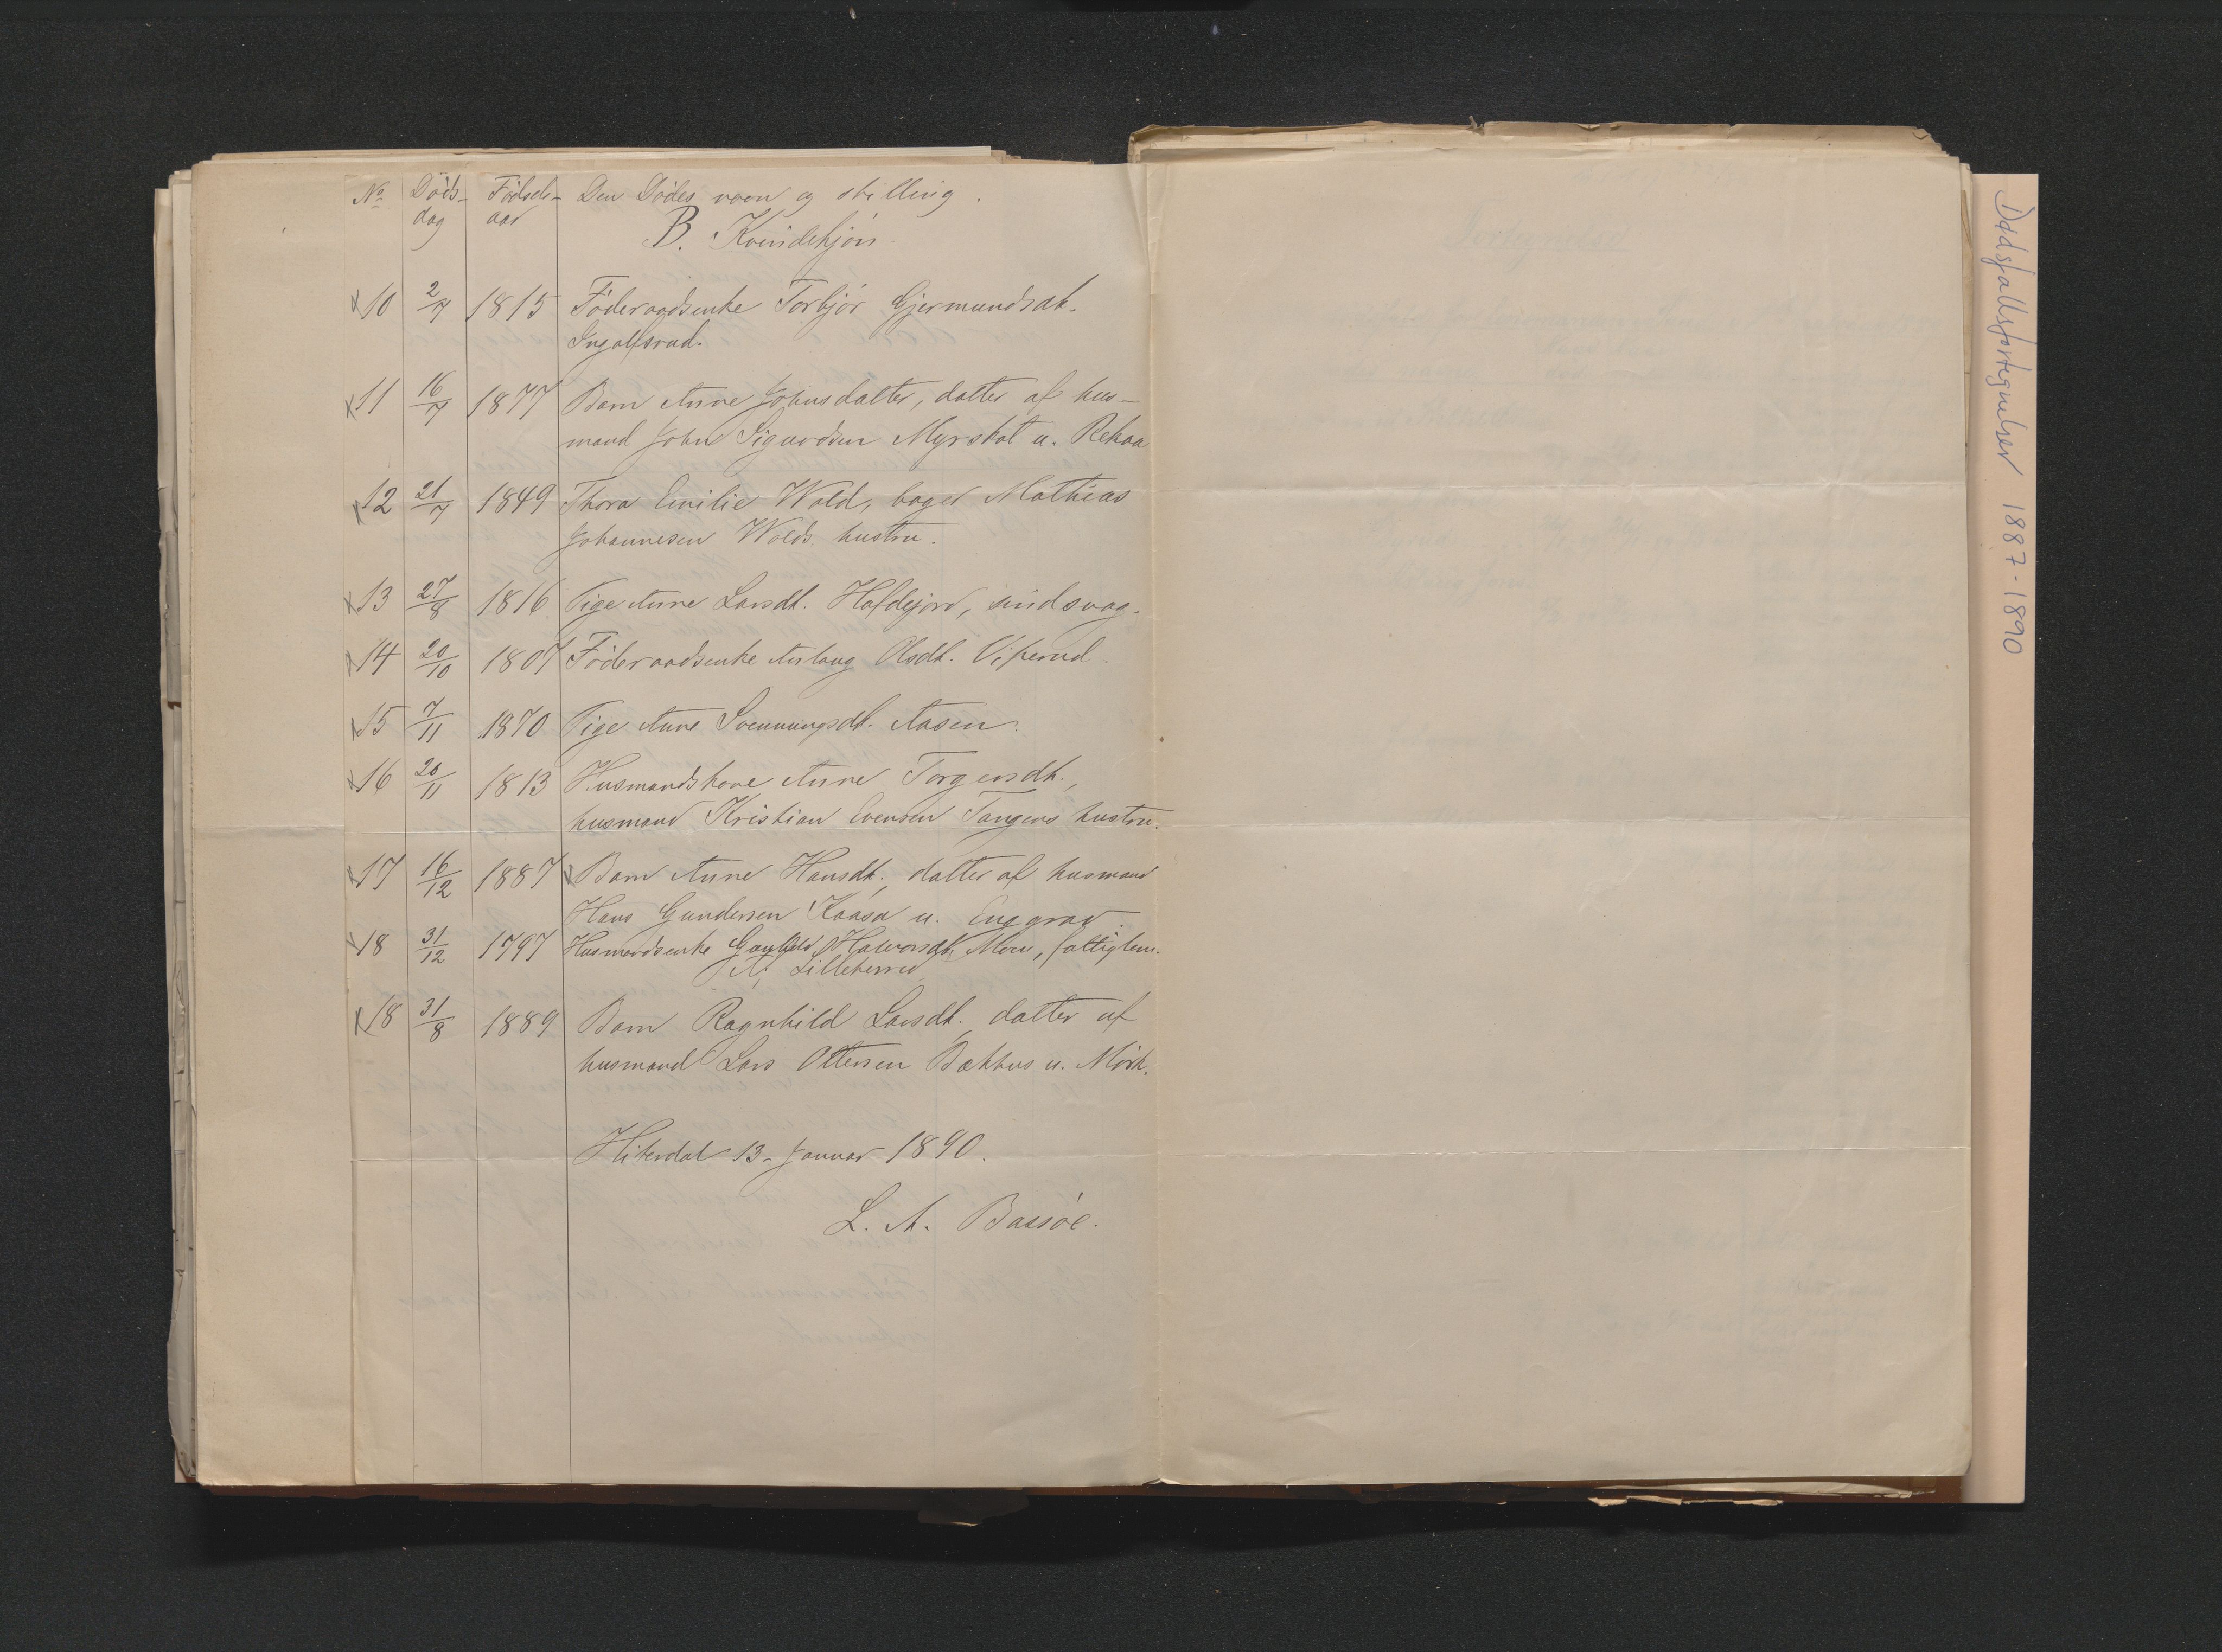 No Döds- Födsels- Den Dödes navn og stilling.
dag aar
B. Kvindekjön
10 2/7 1815 Föderaadsenke Torbjör Gjermundsdt.
Ingolfsrud.
11 16/7 1877 Barn Anne Johnsdatter, datter af hus-
mand John Sigurdsen Myrskot u. Rekaa
12 21/7 1849 Thora Emilie Wold, bager Mathias
Johannesen Wolds hustru.
13 27/8 1816 Pige Anne Larsdt. Hafdejord, sindsvag.
14 20/10 1807 Föderaadsenke Aslaug Olsdt. Viperud.
15 7/11 1870 Pige Anne Svennungsdt. Aasen.
16 20/11 1813 Husmandskone Anne Torgersdt.,
husmand Kristian Evensen Tangens hustru.
17 16/12 1887 Barn Anne Hansdt., datter af husmand
Hans Gundersen Kaasa u. Enggrav.
18 31/12 1797 Husmandsenke Gunhild Halvorsdt. Moen, fattiglem.
Lilleherred
18 31/8 1889 Barn Ragnhild Larsdt. datter af
husmand Lars Ottersen Bækhus u. Mörk.
Hiterdal 13. Januar 1890.
L. A. Bassöe.
Dødsfallsfortegnelser 1887-1890